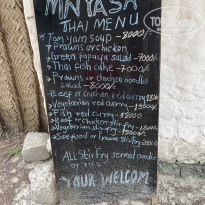 MNYASA
THAI MENU
* Tom yam soup - 8000/-
* Prawns or chicken
* Green papaya salad - 7000/-
* Thai fish cake - 7000/-
* Prawns or chicken noodles
salad - 8000/-
* Beef or chicken red curry
* Vegetarian red curry - 15000/-
* Fish red curry
* Beef or chicken stir fry
* Vegetarian stir fry
* Seafood or Prawns stir fry
ALL Stir fry served noodle
or rice
* YOUR WELCOM